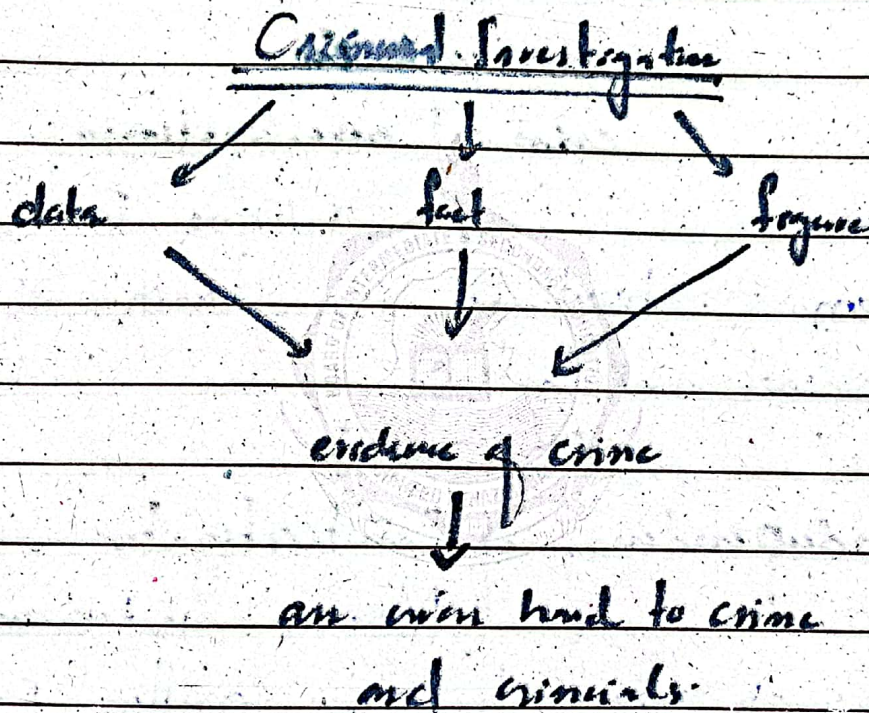 Criminal Investigation
data fact figure
evidence of crime
an iron hand to crime
and criminals.